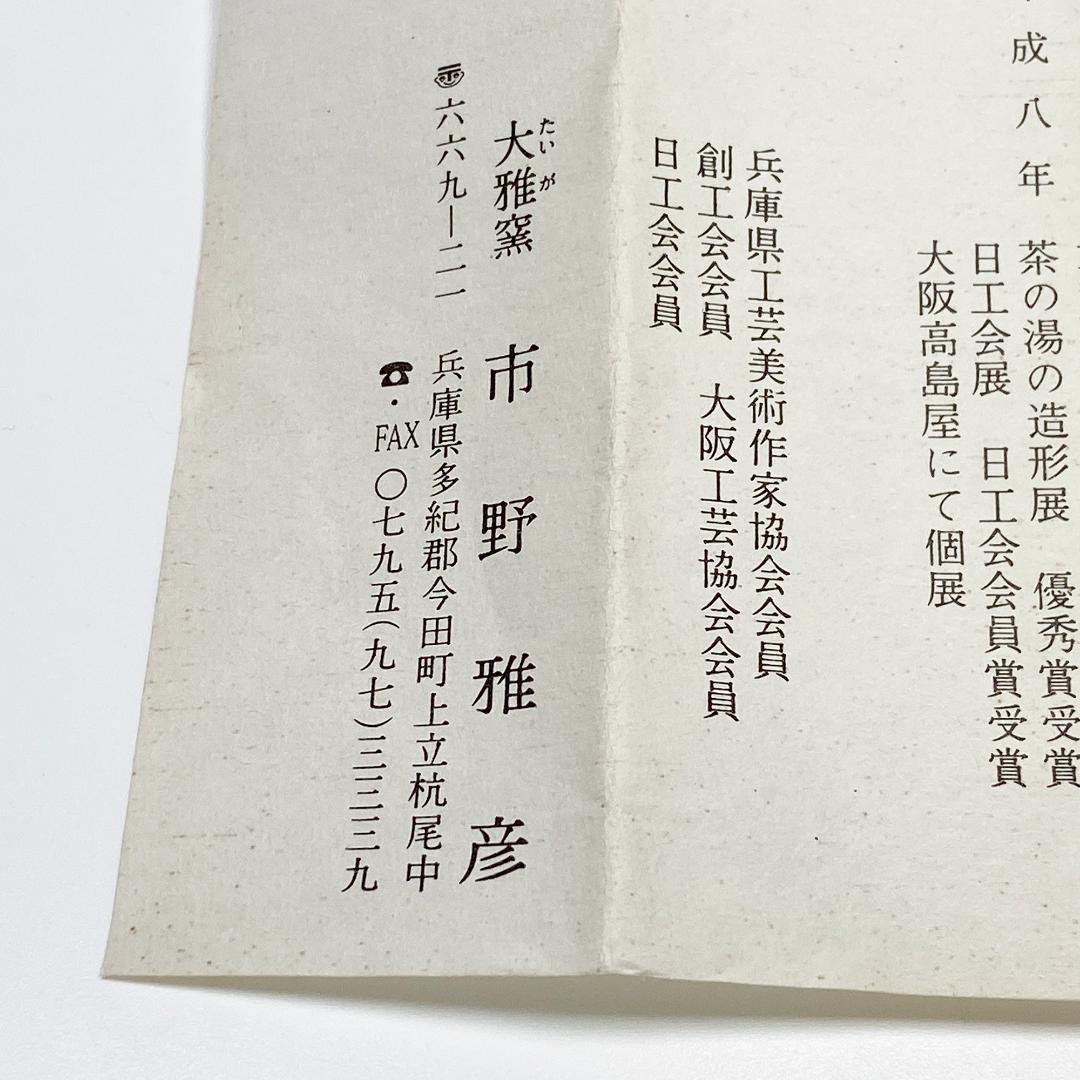 成八年 茶の湯の造形展 優秀賞受賞
日工会展 日工会会員賞受賞
大阪高島屋にて個展
兵庫県工芸美術作家協会会員
創工会会員 大阪工芸協会会員
日工会会員
たいが
大雅窯 市野雅彦
〠六六九―二一 兵庫県多紀郡今田町上立杭尾中
☎・FAX 〇七九五(九七)三三三九